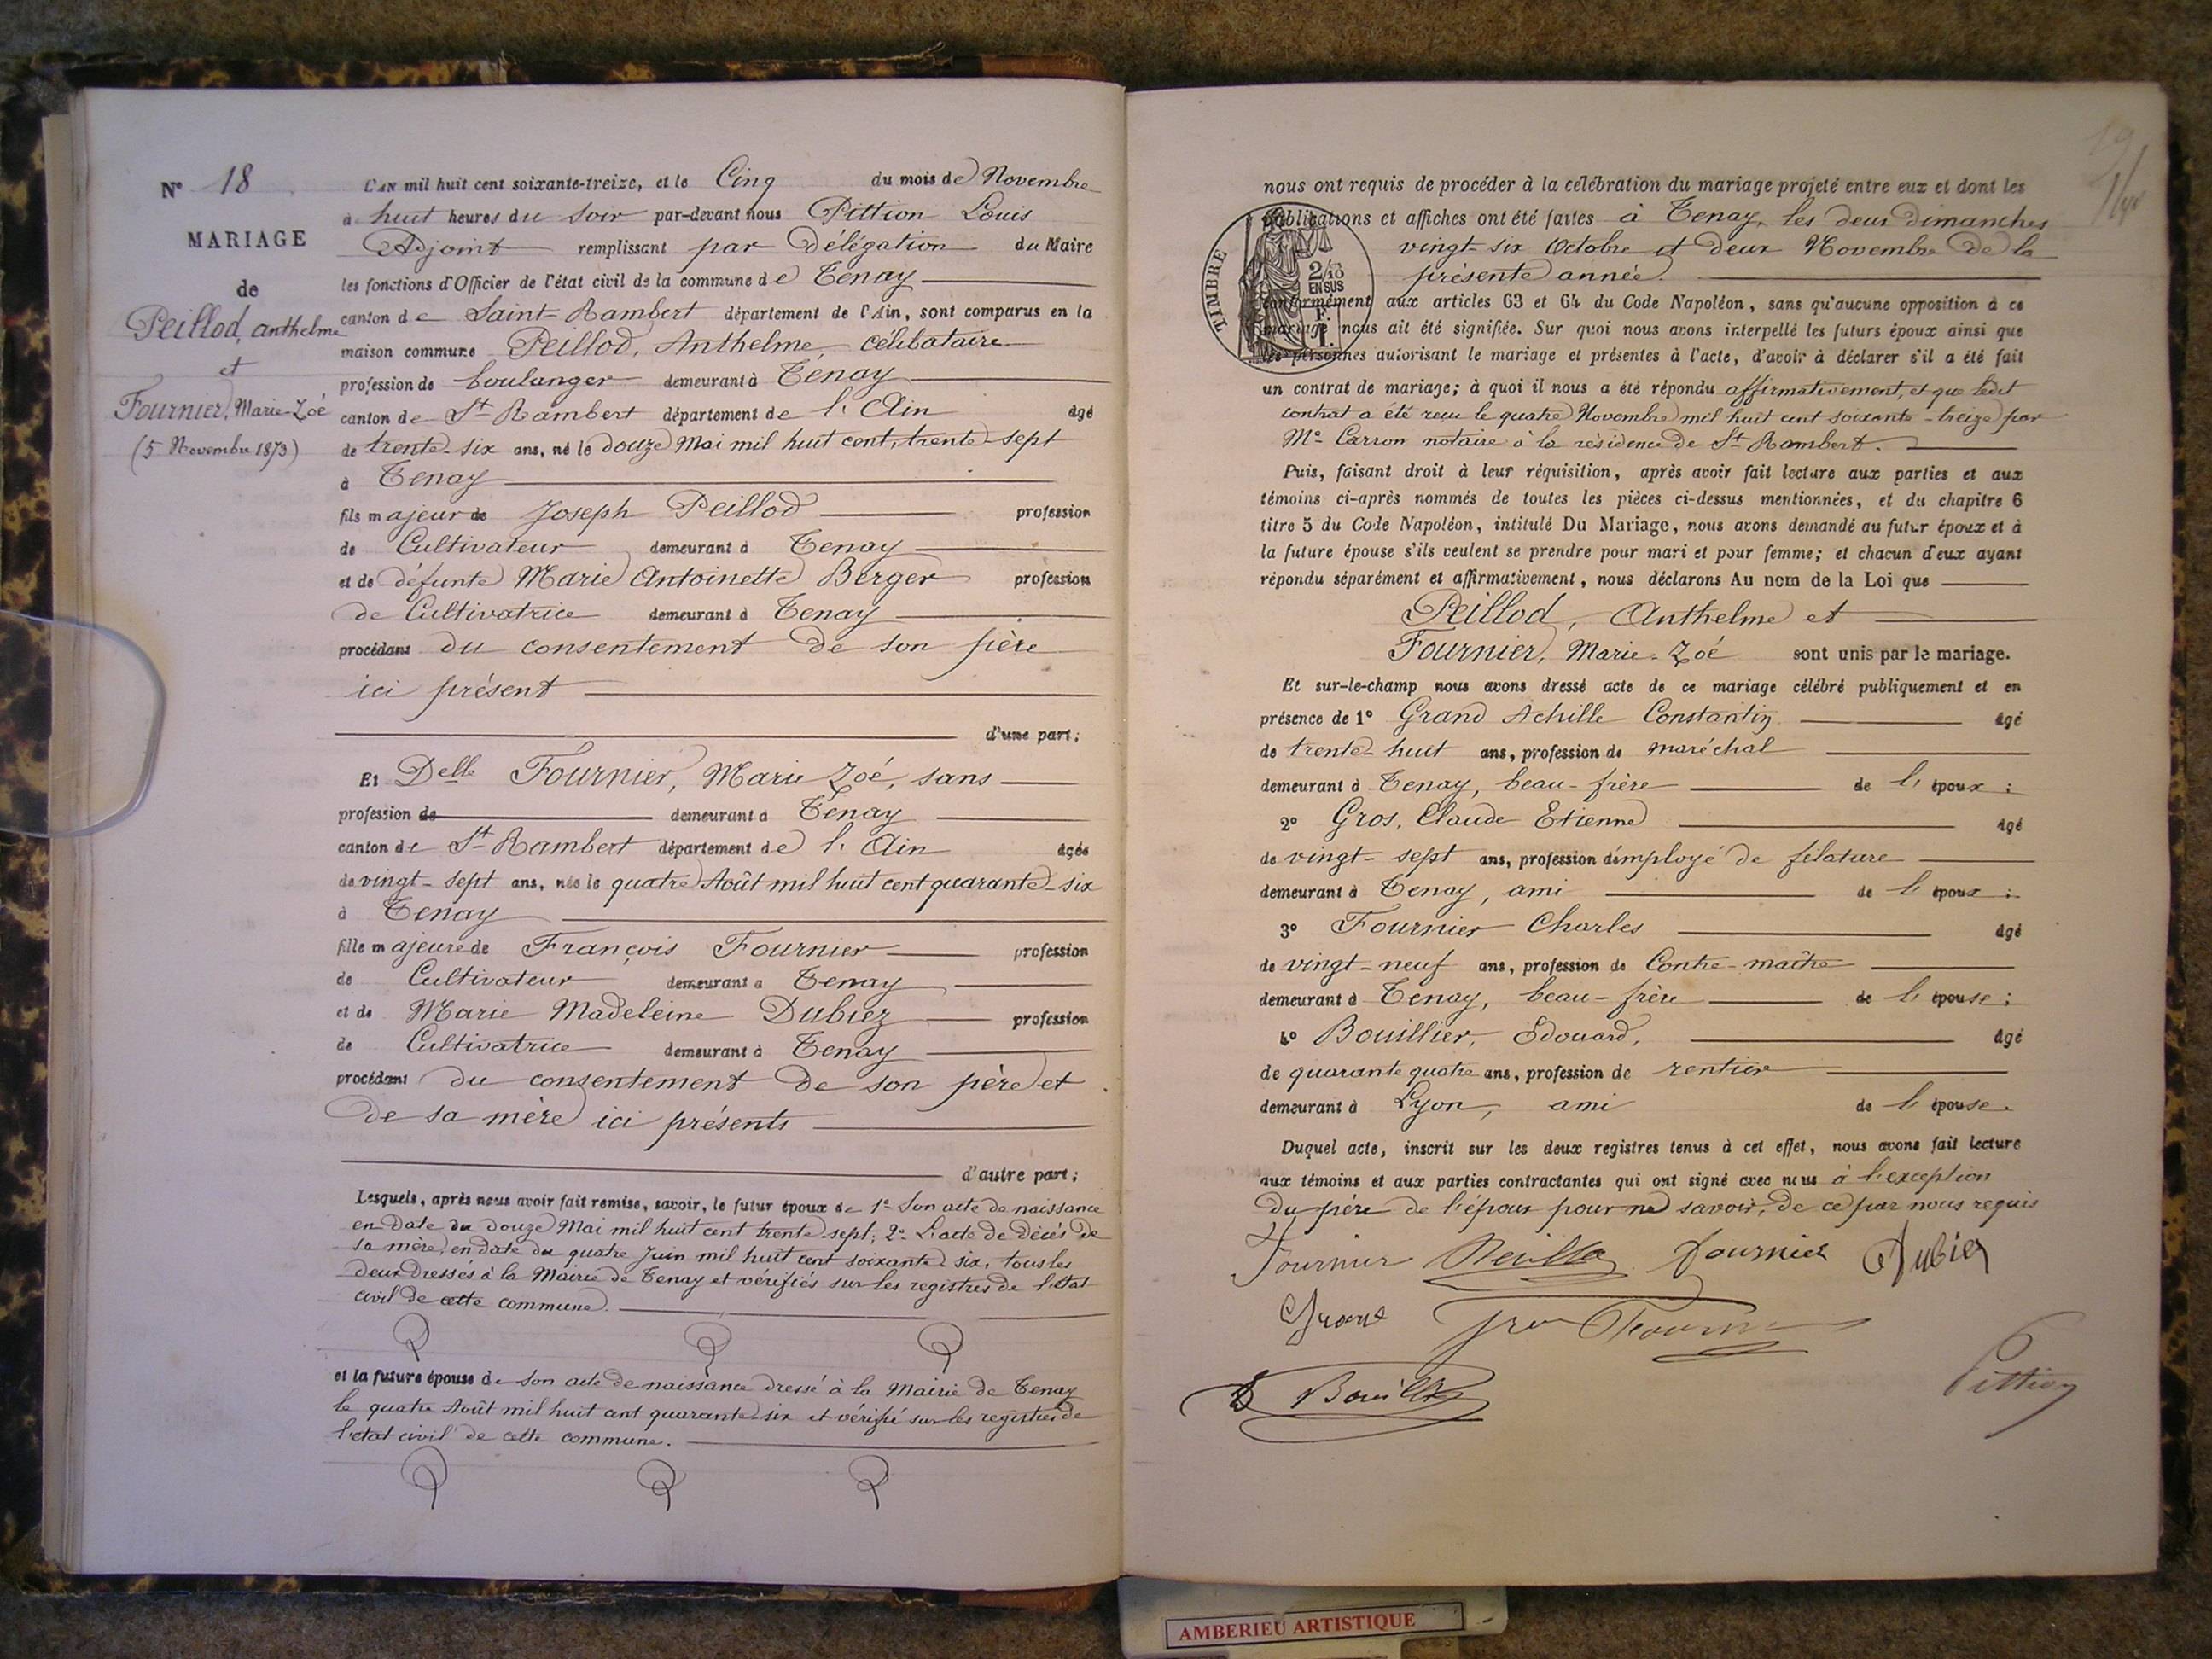 N° 18
MARIAGE
de
Peillod, anthelme
et
Fournier, Marie-Zoé
(5 Novembre 1873)
L'AN mil huit cent soixante-treize, et le Cinq du mois de Novembre
à huit heures du soir par-devant nous Pittion Louis
Adjoint remplissant par délégation du Maire
les fonctions d'Officier de l'état civil de la commune de Tenay
canton de Saint-Rambert département de l'Ain, sont comparus en la
maison commune Peillod, Anthelme, célibataire
profession de boulanger demeurant à Tenay
canton de St Rambert département de l'Ain âgé
de trente-six ans, né le douze Mai mil huit cent trente-sept
à Tenay
fils majeur de Joseph Peillod profession
de Cultivateur demeurant à Tenay
et de défunte Marie Antoinette Berger profession
de Cultivatrice demeurant à Tenay
procédant du consentement de son père
ici présent
d'une part;
Et Delle Fournier, Marie Zoé, sans
profession de demeurant à Tenay
canton de St Rambert département de l'Ain âgée
de vingt-sept ans, née le quatre Août mil huit cent quarante-six
à Tenay
fille majeure de François Fournier profession
de Cultivateur demeurant à Tenay
et de Marie Madeleine Dubiez profession
de Cultivatrice demeurant à Tenay
procédant du consentement de son père et
de sa mère ici présents
d'autre part;
Lesquels, après nous avoir fait remise, savoir, le futur époux de 1° Son acte de naissance
en date du douze Mai mil huit cent trente-sept; 2° L'acte de décès de
sa mère, en date du quatre Juin mil huit cent soixante-six, tous les
deux dressés à la Mairie de Tenay et vérifiés sur les registres de l'état
civil de cette commune.
et la future épouse de son acte de naissance dressé à la Mairie de Tenay
le quatre Août mil huit cent quarante-six et vérifié sur les registres de
l'état civil de cette commune.
nous ont requis de procéder à la célébration du mariage projeté entre eux et dont les
publications et affiches ont été faites à Tenay, les deux dimanches
vingt-six Octobre et deux Novembre de la
présente année.
conformément aux articles 63 et 64 du Code Napoléon, sans qu'aucune opposition à ce
mariage nous ait été signifiée. Sur quoi nous avons interpellé les futurs époux ainsi que
les personnes autorisant le mariage et présentes à l'acte, d'avoir à déclarer s'il a été fait
un contrat de mariage; à quoi il nous a été répondu affirmativement, et que ledit
contrat a été reçu le quatre Novembre mil huit cent soixante-treize par
Me Carron notaire à la résidence de St Rambert.
Puis, faisant droit à leur réquisition, après avoir fait lecture aux parties et aux
témoins ci-après nommés de toutes les pièces ci-dessus mentionnées, et du chapitre 6
titre 5 du Code Napoléon, intitulé Du Mariage, nous avons demandé au futur époux et à
la future épouse s'ils veulent se prendre pour mari et pour femme; et chacun d'eux ayant
répondu séparément et affirmativement, nous déclarons Au nom de la Loi que
Peillod, Anthelme et
Fournier, Marie-Zoé sont unis par le mariage.
Et sur-le-champ nous avons dressé acte de ce mariage célébré publiquement et en
présence de 1° Grand Achille Constantin âgé
de trente-huit ans, profession de maréchal
demeurant à Tenay, beau-frère de l'époux;
2° Gros, Claude Etienne âgé
de vingt-sept ans, profession d'employé de filature
demeurant à Tenay, ami de l'époux;
3° Fournier Charles âgé
de vingt-neuf ans, profession de Contre-maître
demeurant à Tenay, beau-frère de l'épouse;
4° Bouillier, Edouard, âgé
de quarante quatre ans, profession de rentier
demeurant à Lyon, ami de l'épouse.
Duquel acte, inscrit sur les deux registres tenus à cet effet, nous avons fait lecture
aux témoins et aux parties contractantes qui ont signé avec nous à l'exception
du père de l'époux pour ne savoir, de ce par nous requis
Fournier Peillod Fournier Dubiez
Grand Fournier
Bouillier
Pittion
TIMBRE
2/10
EN SUS
AMBERIEU ARTISTIQUE